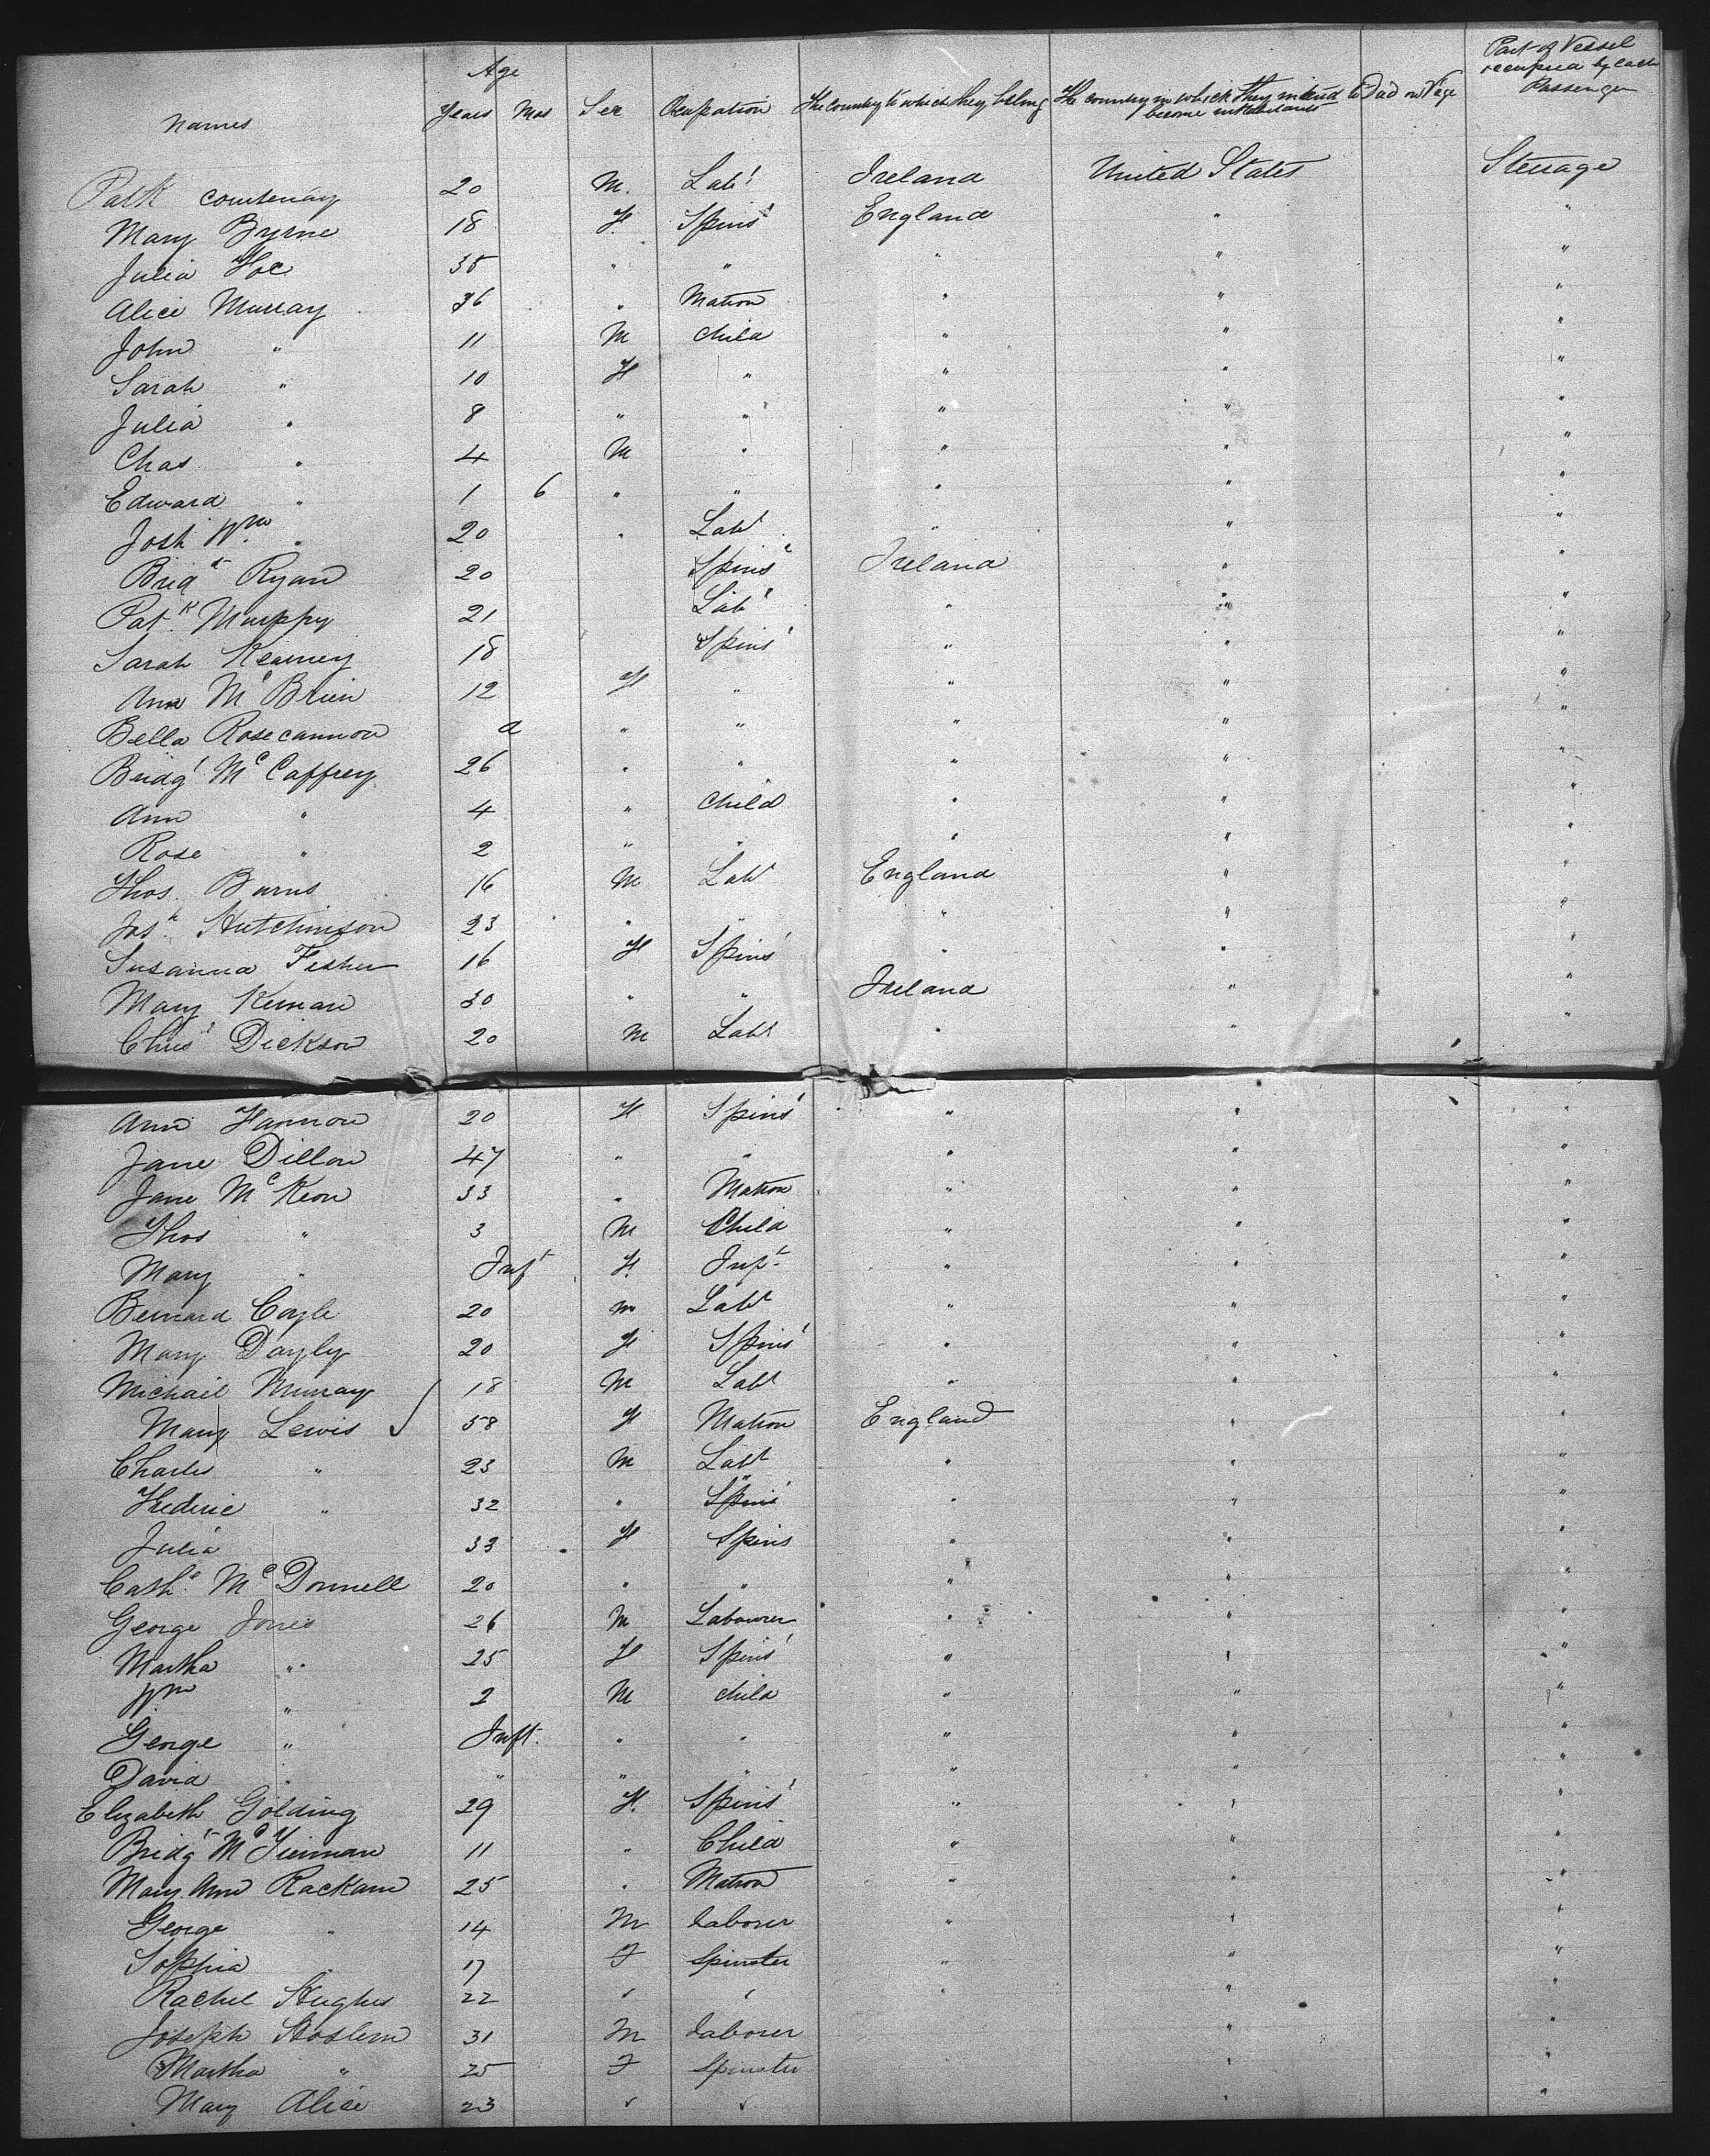 Names Age Years Mos Sex Occupation The Country to which they belong The country in which they intend to become inhabitants Died on Vage Part of Vessel occupied by each Passenger
Patk Courtenay 20 M. Labr Ireland United States Steerage
Mary Byrne 18 F. Spinsr England " "
Julia 35 " " " " "
Alice Murray 36 " Matron " " "
John " 11 M Child " " "
Sarah " 10 F " " " "
Julia " 8 " " " " "
Chas " 4 M " " " "
Edward " 1 6 " " " " "
Josh Wm " 20 " Labr " " "
Brigt Ryan 20 Spinsr Ireland " "
Patk Murphy 21 Labr " " "
Sarah Kearney 18 Spinsr " " "
Ann McBrien 12 F " " " "
Bella Rosecannon a " " " " "
Bridgt McCaffrey 26 " " " " "
Ann " 4 " Child " " "
Rose " 2 " " " " "
Thos. Burns 16 M Labr England " "
Josh Hutchinson 23 " " " " "
Susanna Fisher 16 F Spinsr " " "
Mary Kernan 30 " " Ireland " "
Chrisr Dickson 20 M Labr " " "
Ann Hannon 20 F Spinsr " " "
Jane Dillon 47 " " " " "
Jane McKeon 33 " Matron " " "
Thos " 3 M Child " " "
Mary " Inft F. Inft " " "
Bernard Coyle 20 M Labr " " "
Mary Dayly 20 F Spinsr " " "
Michail Murray 18 M Labr " " "
Mary Lewis 58 F Matron England " "
Charles " 23 M Labr " " "
Frederic " 32 " " Spinsr " " "
Julia " 33 F Spins " " "
Cathe McDonnell 20 " " " " "
George Jones 26 M Labourer " " "
Martha " 25 F Spinsr " " "
Wm " 2 M child " " "
George " Inft. " " " " "
David " " " " " " "
Elizabeth Golding 29 F. Spinsr " " "
Bridgt McTiernan 11 " Child " " "
Mary Ann Rackam 25 " Matron " " "
George " 14 M laborer " " "
Sophia " 17 F Spinster " " "
Rachel Hughes 22 " " " " "
Joseph Hoslem 31 M laborer " "
Martha " 25 F Spinster " "
Mary Alice 23 " " " "